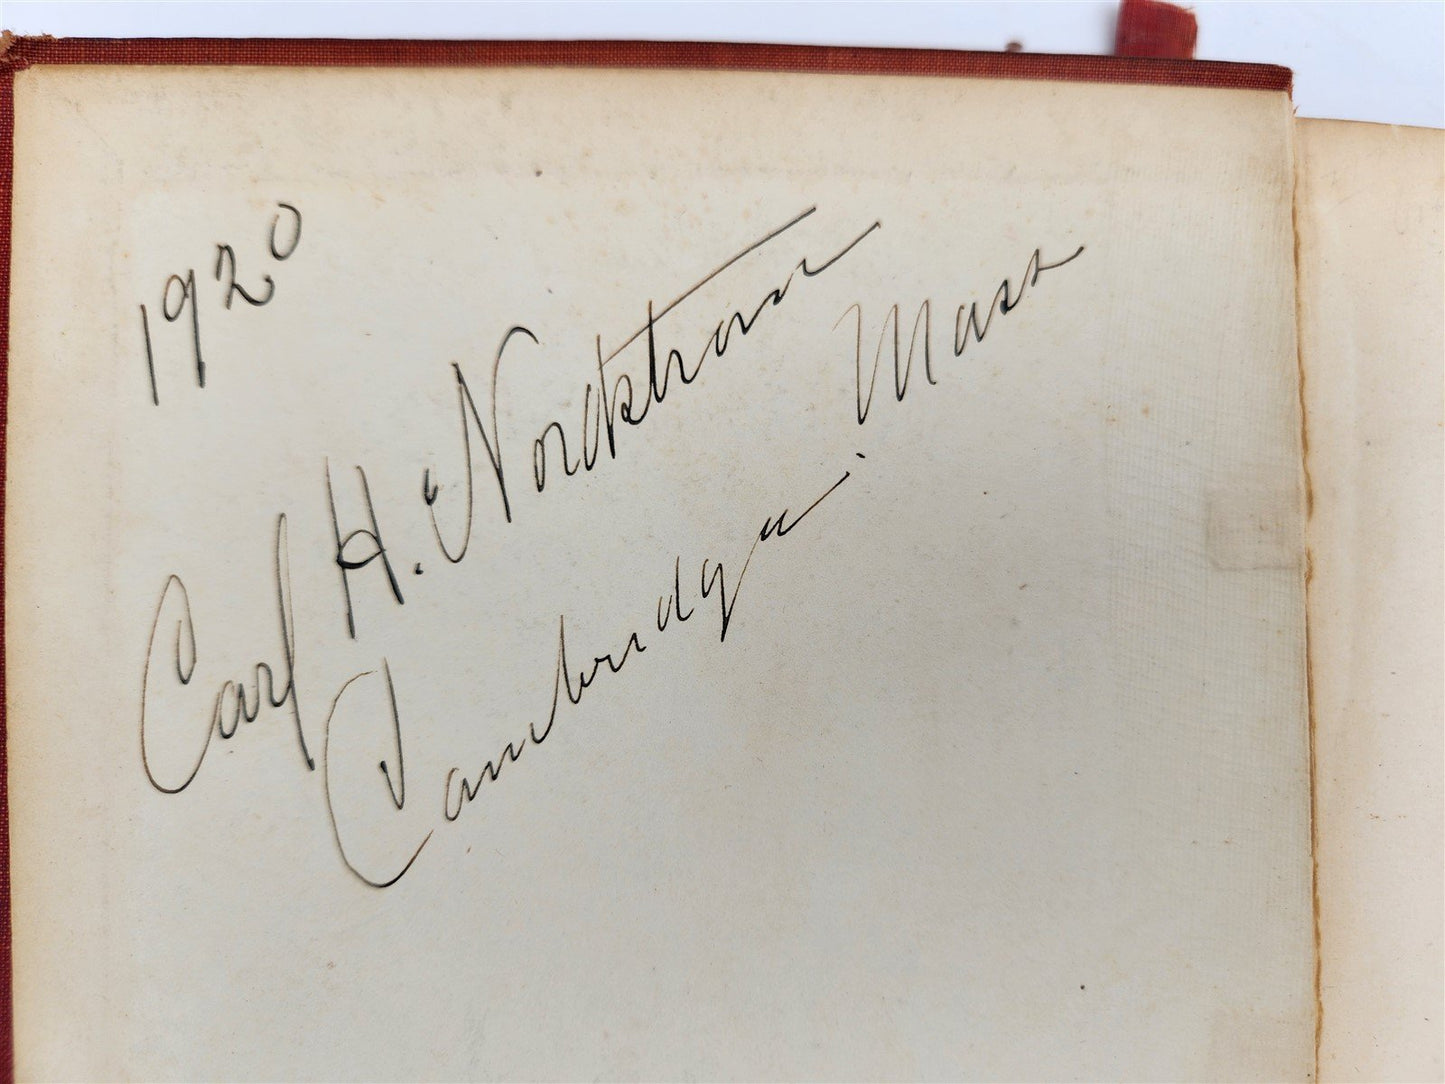 1920
Carl H. Nordstrom
Cambridge. Mass